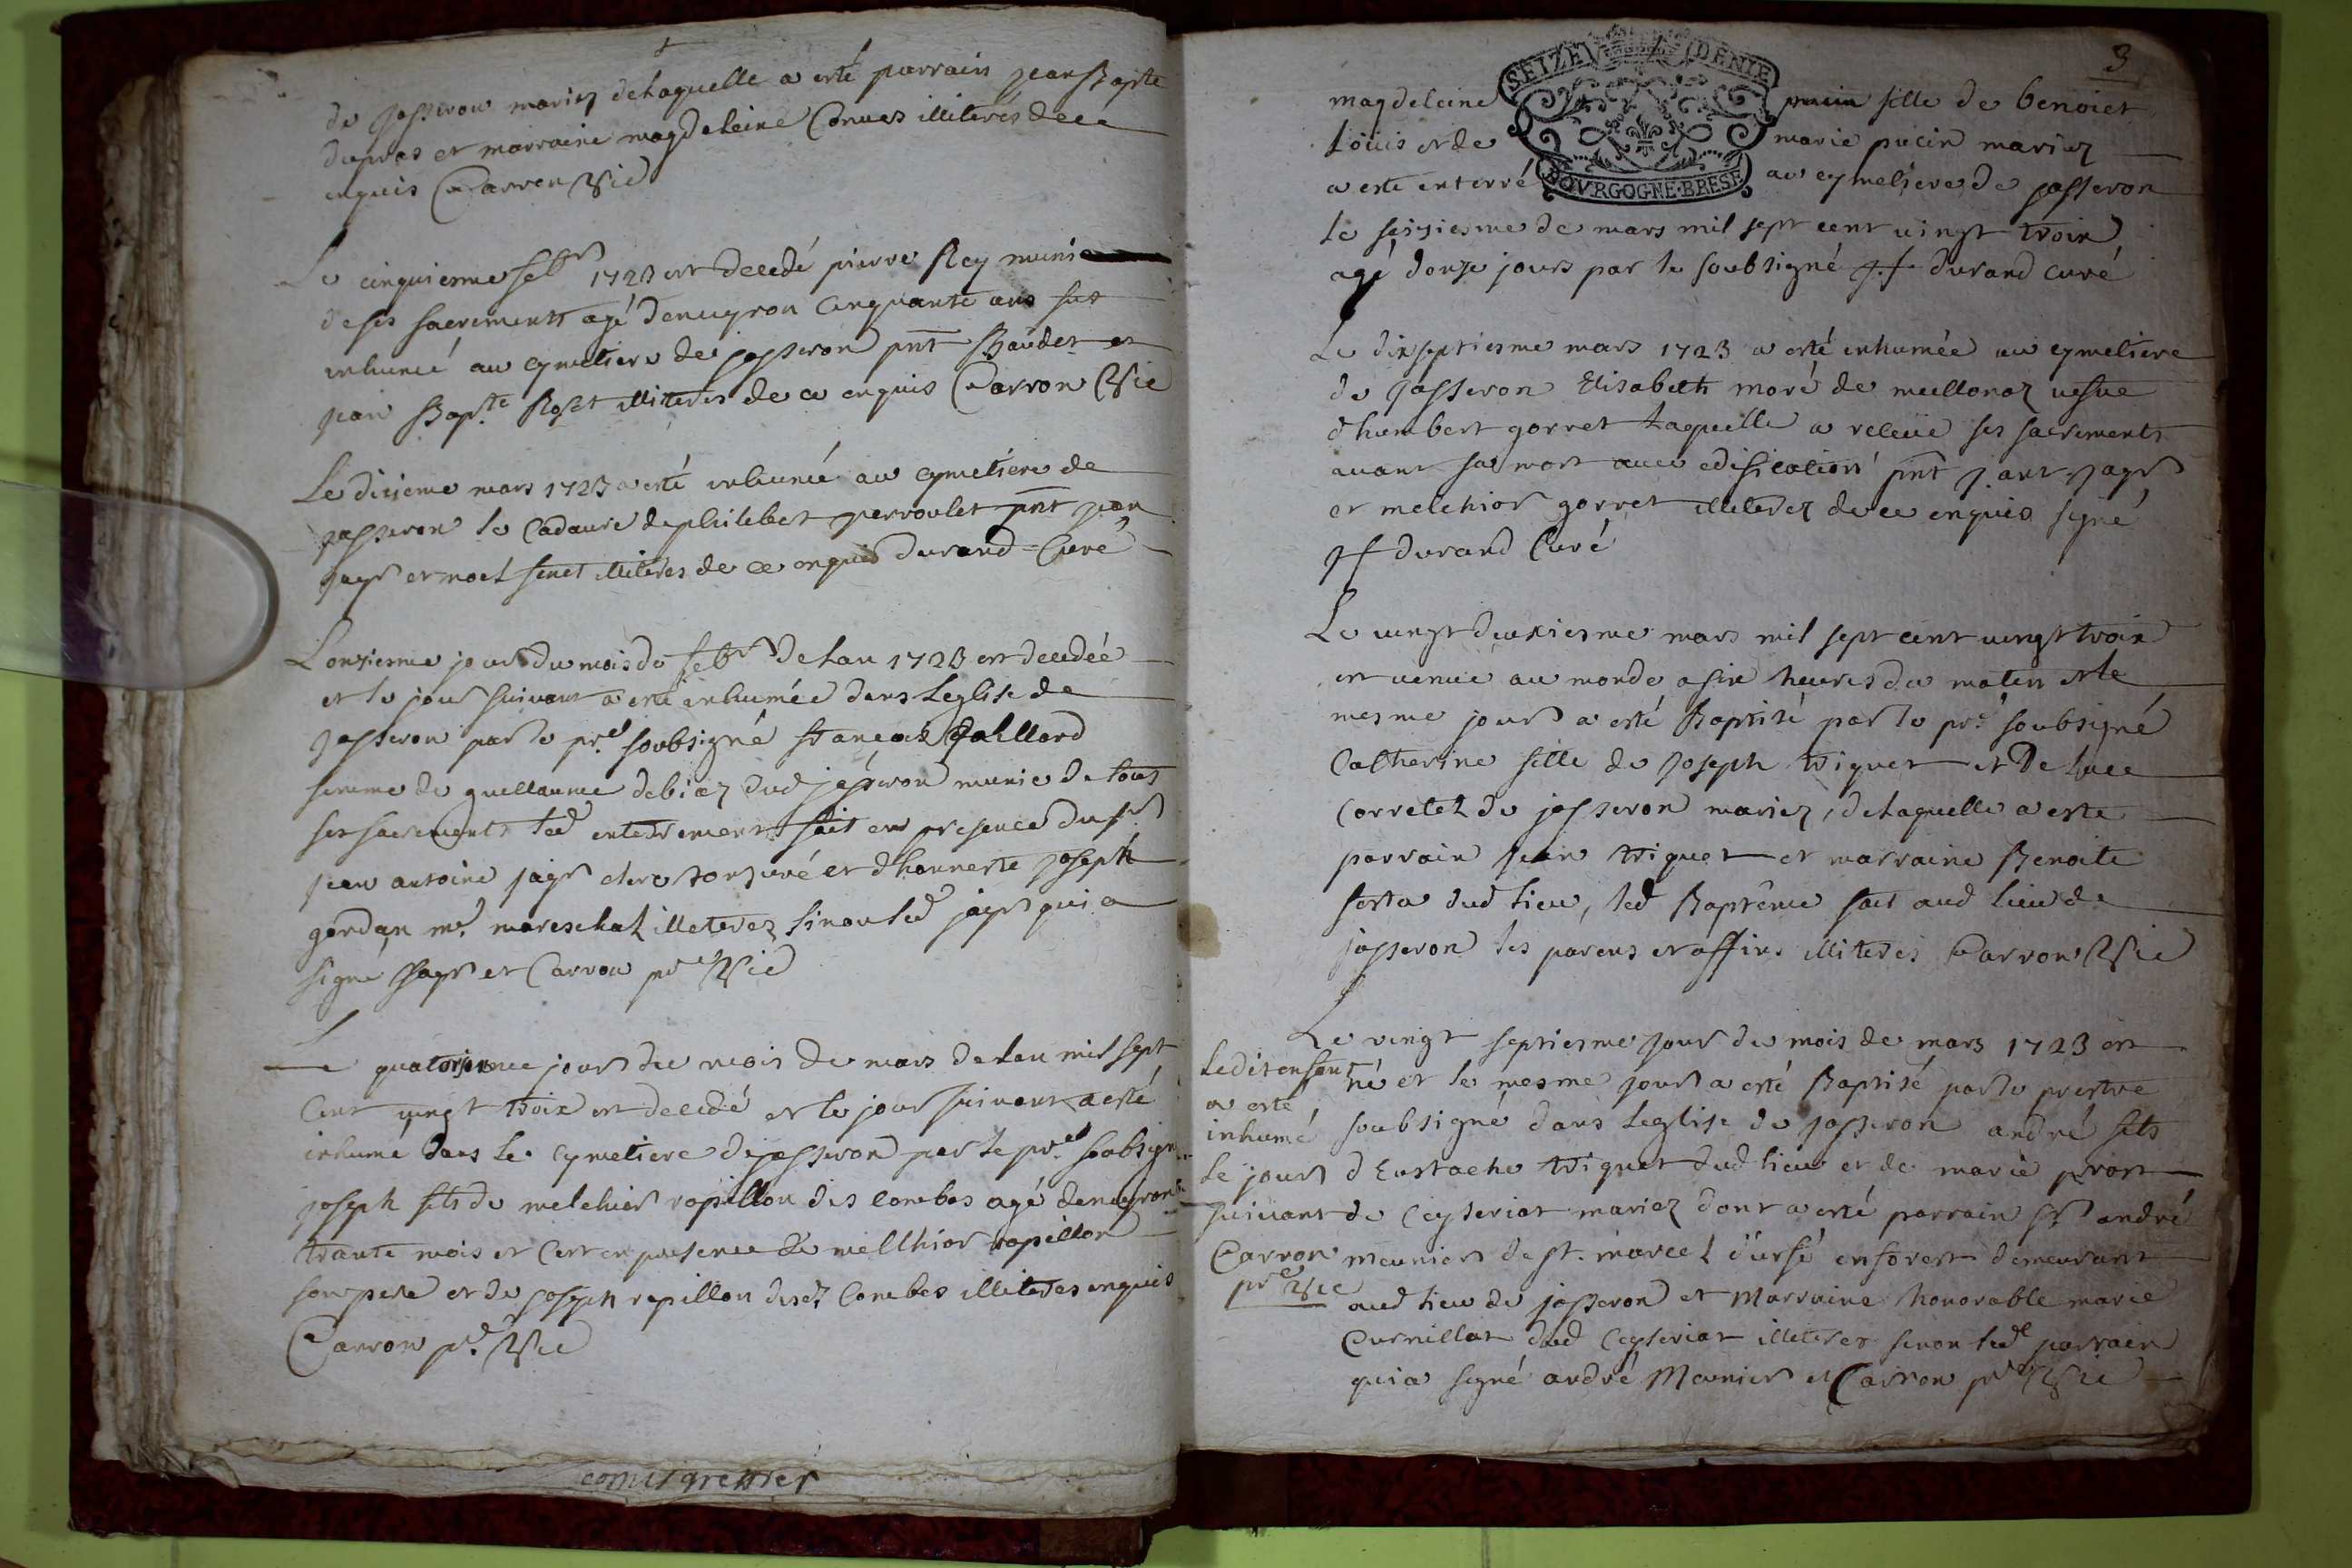 de Josseron mariez de laquelle a esté parrain Jean Bapte
dupras et marraine magdeleine Convers illiterés de ce
enquis Carron Vic
Le cinquiesme febr 1723 est decedé pierre Rey muni
de ses sacrements agé denuyron cinquante ans fut
inhumé au cymetiere de josseron pnt Baudet et
jean Bapte Roset illiterés de ce enquis Carron Vic
Le dixieme mars 1723 a esté inhumé au cymetiere de
josseron le Cadavre de philibert perroulet pnt jean
jayr et illiterés de ce enquis Durand Curé
L'onzieme jour du mois de febr de lan 1723 est decedée
et le jour suivant a esté inhumée dans Leglise de
Josseron par le pre soubsigné françoise gaillard
femme de guellaume debiaz dud josseron munie de tous
ses sacrements led enterrement fait en presence du sr
jean antoine jayr clerc tonsuré et d'honneste joseph
gordan me mareschal illeterez sinon led jayr qui a
signé jayr et Carron pre Vic
Le quatorzieme jour du mois de mars de lan mil sept
cent vingt trois est decedé et le jour suivant a esté
inhumé dans le cymetiere de josseron par le pre soubsigné
joseph fils de melchior ropillon des combes agé denuyron
trante mois et c'est en presence de melchior ropillon
son pere et de joseph ropillon desd Combes illiterés enquis
Carron pre Vic
comis greffier
3
SEIZE DENIE
magdeleine fille de benoict
Louis et de marie pucin mariez
a esté enterré au cymetiere de josseron
le seiziesme de mars mil sept cent vingt trois
agé donze jours par le soubsigné J f durand curé
BOVRGOGNE·BRESE
Le dixseptiesme mars 1723 a esté inhumée au cymetiere
de josseron Elisabeth moré de meillonaz vefve
dhumbert gorret laquelle a receüe ses sacrements
auant sa mort avec edification pnt j. ant jayr
et melchior gorret illiterez de ce enquis signé
J f durand Curé
Le vingt deuxiesme mars mil sept cent vingt trois
est venue au monde a six heures du matin et le
mesme jour a esté Baptisé par le pre soubsigné
Catherine fille de joseph triquet et De luce
Corretel de josseron mariez, de laquelle a esté
parrain jean triquet et marraine Benoite
ferra dud lieu, led Baptême fait aud lieu de
josseron les parens et affins illiterés Carron Vic
Le vingt septiesme jour du mois de mars 1723 est
né et le mesme jour a esté Baptisé par le prestre
soubsigné dans leglise de josseron andré fils
d'Eustache triquet dud lieu et de marie pront
de Ceyseriat mariez dont a esté parrain sr andré
meunier de st. marcel d'urfé en forest demeurant
aud lieu de josseron et Marraine honorable marie
Curnillat dud Ceyseriat illiterés sinon led parrain
qui a signé andré Meunier et Carron pre Vic
Ledit enfant
a esté
inhumé
le jour
suivant
Carron
pre Vic